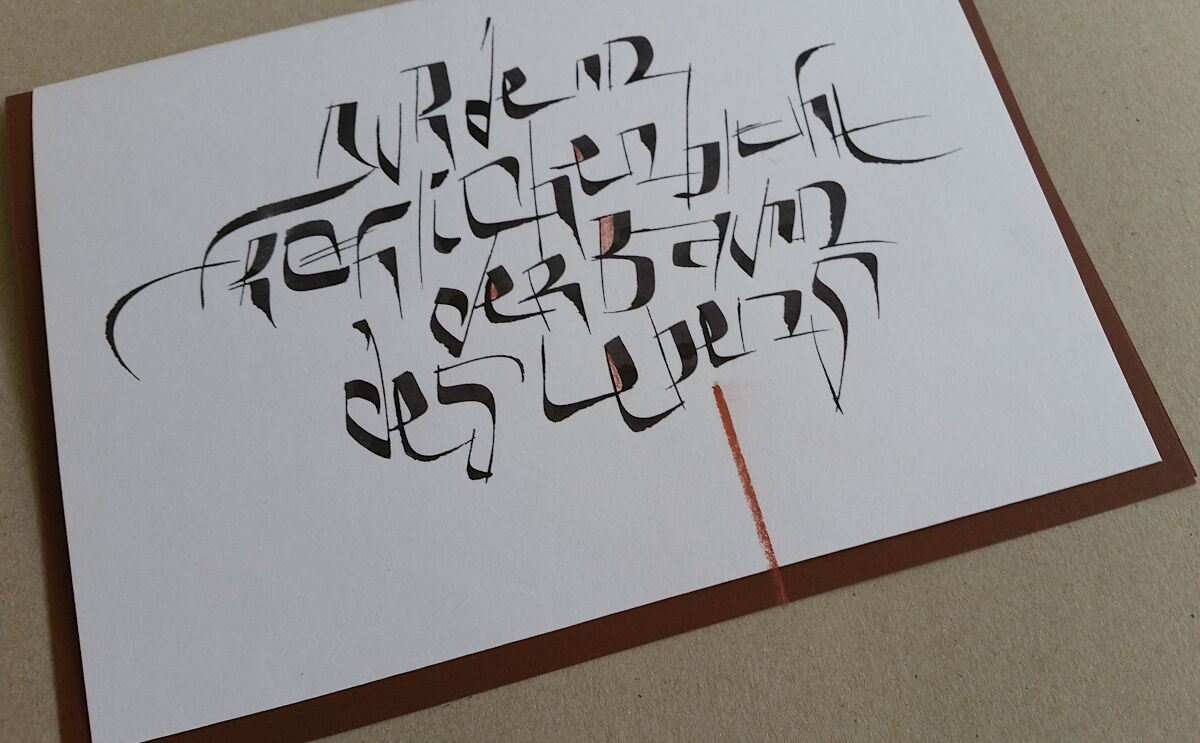 Nur dem
Fröhlichen blüht
der Baum
des Lebens